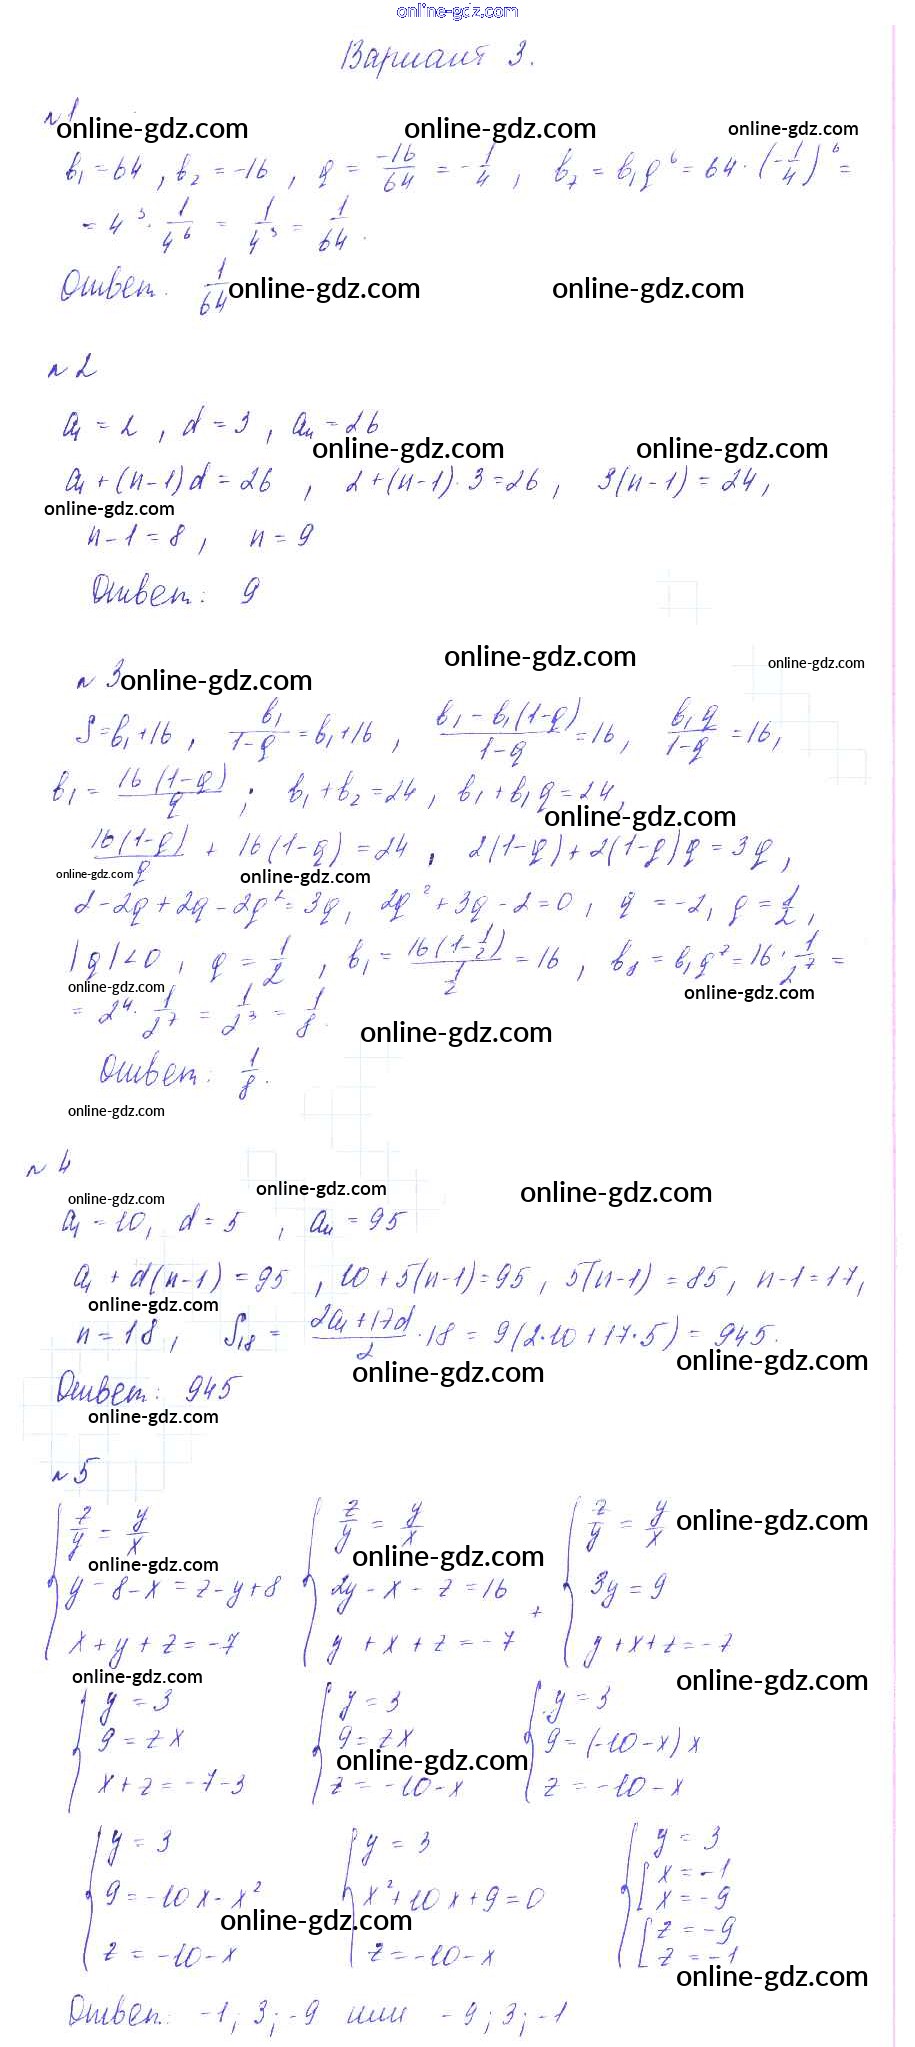 online-gdz.com
Вариант 3.
№1
online-gdz.com online-gdz.com online-gdz.com
b₁=64, b₂=-16, q = -16/64 = -1/4, b₇ = b₁q⁶ = 64·(-1/4)⁶ =
= 4³·1/4⁶ = 1/4³ = 1/64.
Ответ. 1/64
online-gdz.com online-gdz.com
№2
a₁=2, d=3, aₙ=26
online-gdz.com online-gdz.com
a₁+(n-1)d=26, 2+(n-1)·3=26, 3(n-1)=24,
online-gdz.com
n-1=8, n=9
Ответ: 9
online-gdz.com online-gdz.com
№3
online-gdz.com
S=b₁+16, b₁/(1-q)=b₁+16, (b₁-b₁(1-q))/(1-q)=16, b₁q/(1-q)=16,
b₁=16(1-q)/q; b₁+b₂=24, b₁+b₁q=24,
online-gdz.com
16(1-q)/q + 16(1-q)=24, 2(1-q)+2(1-q)q=3q,
online-gdz.com online-gdz.com
2-2q+2q-2q²=3q, 2q²+3q-2=0, q=-2, q=1/2,
|q|<0, q=1/2, b₁=16(1-1/2)/(1/2)=16, b₈=b₁q⁷=16·1/2⁷=
online-gdz.com online-gdz.com
=2⁴·1/2⁷=1/2³=1/8.
online-gdz.com
Ответ: 1/8.
online-gdz.com
№4
online-gdz.com online-gdz.com online-gdz.com
a₁=10, d=5, aₙ=95
a₁+d(n-1)=95, 10+5(n-1)=95, 5(n-1)=85, n-1=17,
online-gdz.com
n=18, S₁₈=(2a₁+17d)/2·18=9(2·10+17·5)=945.
online-gdz.com online-gdz.com
Ответ: 945
online-gdz.com
№5
z/y=y/x z/y=y/x z/y=y/x
online-gdz.com
online-gdz.com online-gdz.com
y-8-x=z-y+8 2y-x-z=16 + 3y=9
x+y+z=-7 y+x+z=-7 y+x+z=-7
online-gdz.com online-gdz.com
y=3 y=3 y=3
9=zx 9=zx 9=(-10-x)x
online-gdz.com
x+z=-7-3 z=-10-x z=-10-x
y=3 y=3 y=3
x=-1
9=-10x-x² x²+10x+9=0 x=-9
online-gdz.com
z=-9
z=-10-x z=-10-x z=-1
online-gdz.com
Ответ: -1; 3; -9 или -9; 3; -1